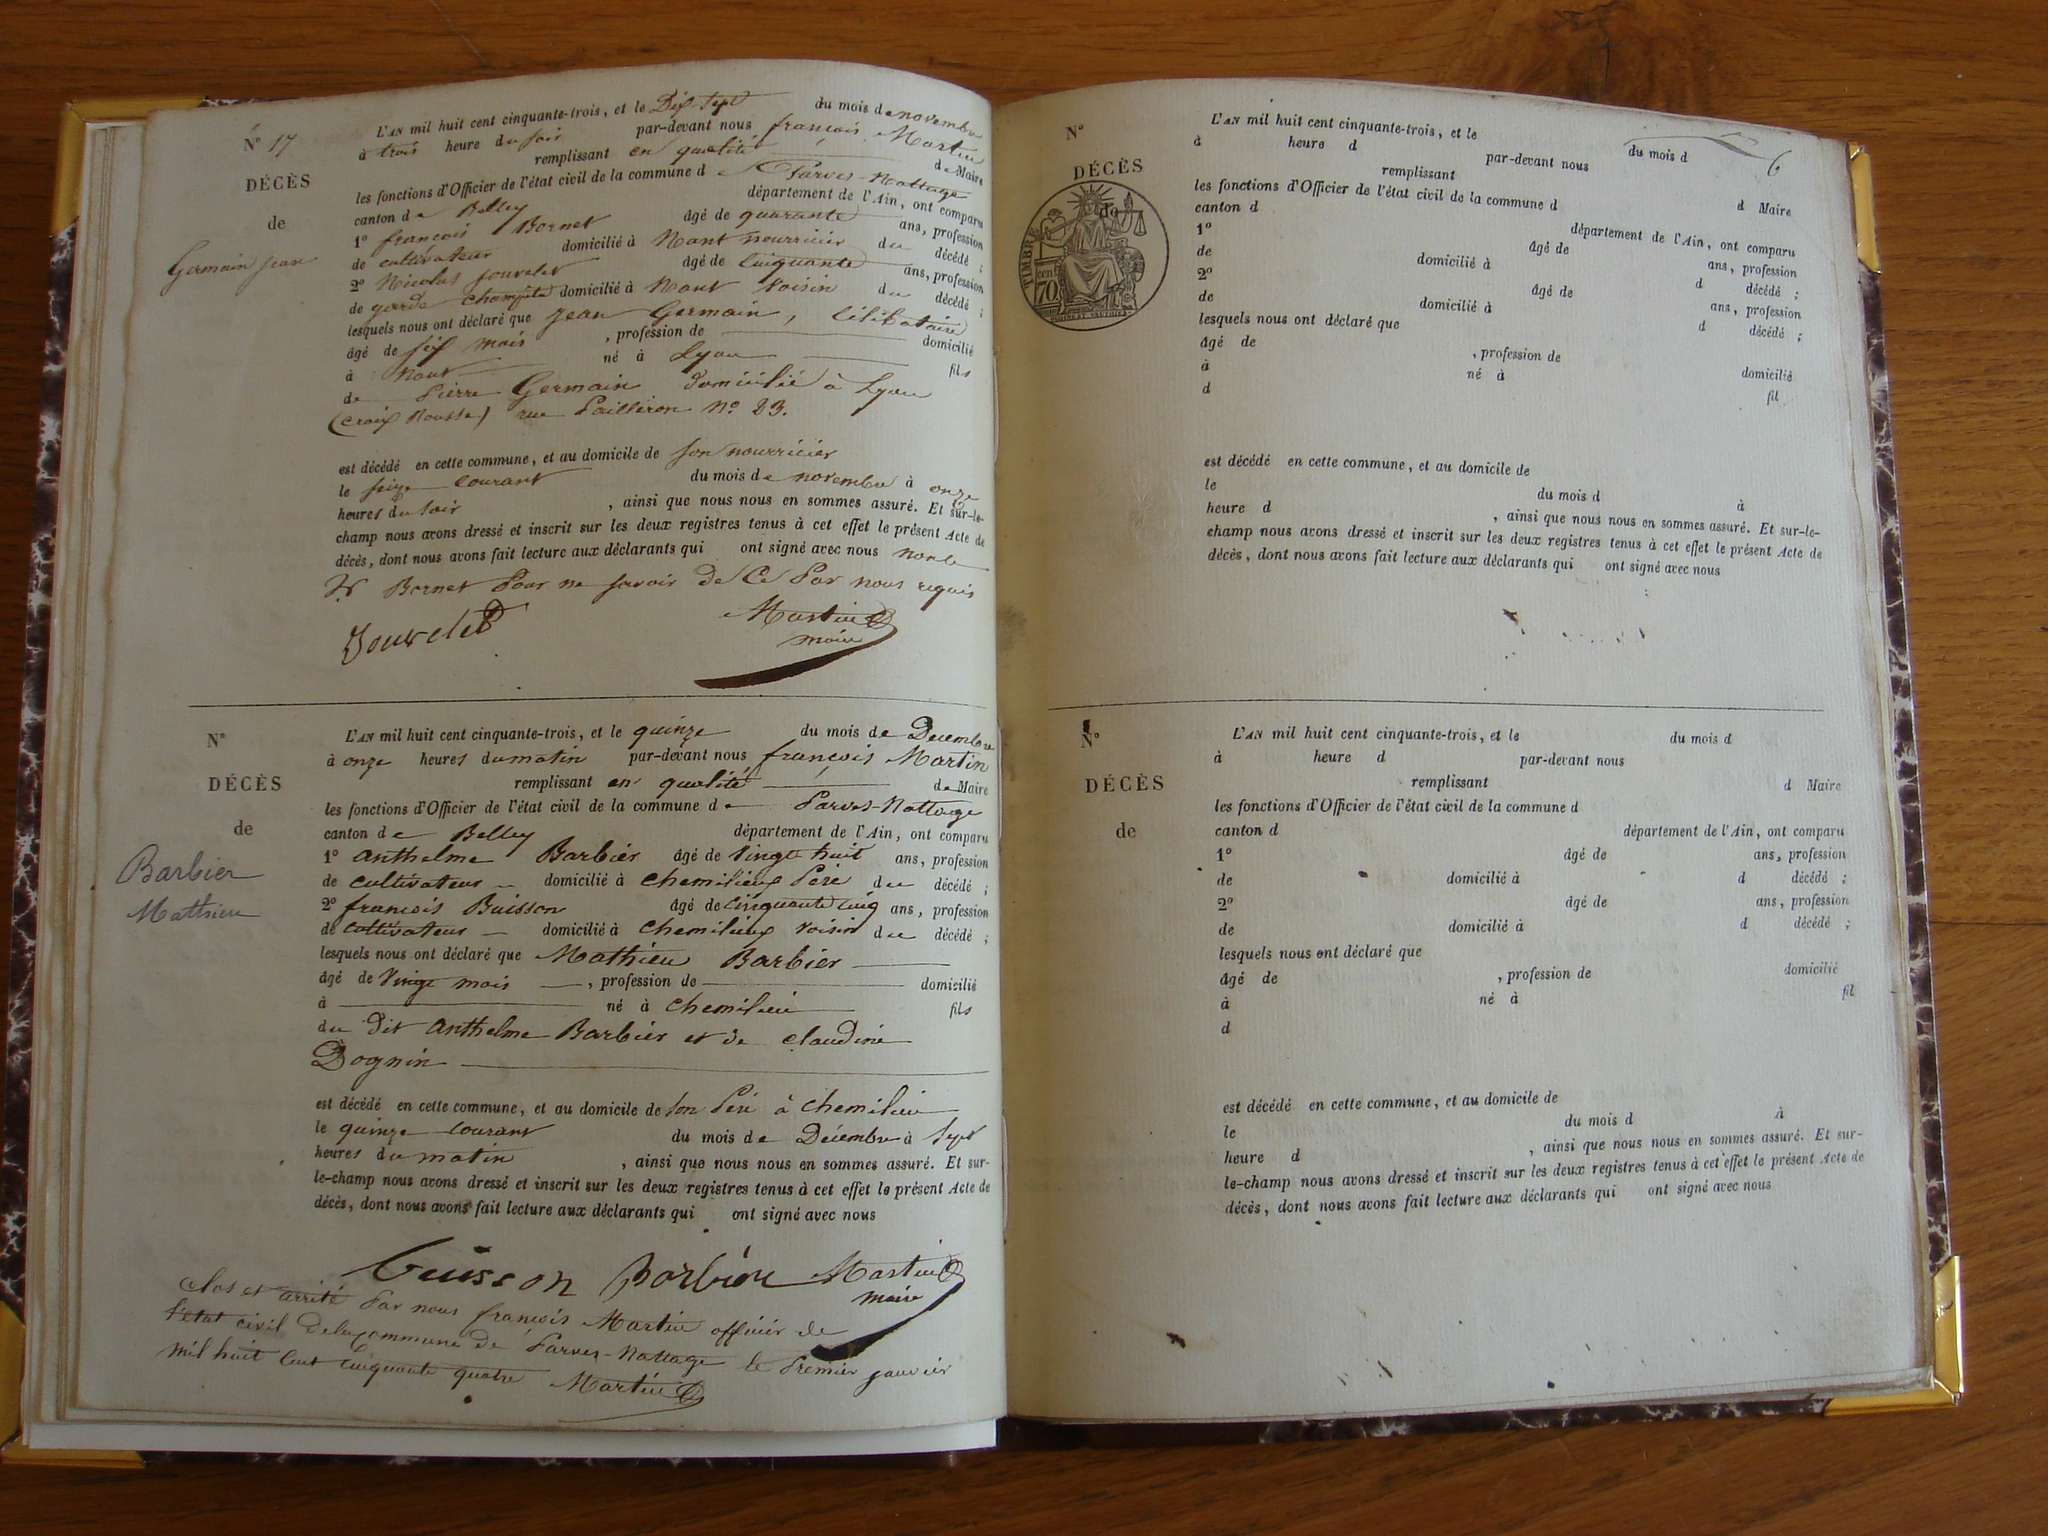 N° 17
DÉCÈS
de
Germain Jean
L'AN mil huit cent cinquante-trois, et le Dix-Sept du mois de novembre
à trois heure du soir par-devant nous françois Martin
remplissant en qualité de Maire
les fonctions d'Officier de l'état civil de la commune de Parves-Nattage
canton de Belley département de l'Ain, ont comparu
1° françois Bornet âgé de quarante ans, profession
de cultivateur domicilié à Nant nourricier du décédé ;
2° Nicolas Jouvelet âgé de Cinquante ans, profession
de garde champêtre domicilié à Nant Voisin du décédé ;
lesquels nous ont déclaré que Jean Germain, Célibataire
âgé de six mois , profession de domicilié
à Nant né à Lyon fils
de Pierre Germain domicilié à Lyon
(croix Rousse) rue Pailleron N° 23.
est décédé en cette commune, et au domicile de son nourricier
le seize courant du mois de novembre à onze
heures du soir , ainsi que nous nous en sommes assuré. Et sur-le-
champ nous avons dressé et inscrit sur les deux registres tenus à cet effet le présent Acte de
décès, dont nous avons fait lecture aux déclarants qui ont signé avec nous non le
Bornet Pour ne savoir de Ce Par nous requis
Jouvelet
Martin
maire
N°
DÉCÈS
de
Barbier
Mathieu
L'AN mil huit cent cinquante-trois, et le quinze du mois de Decembre
à onze heures du matin par-devant nous françois Martin
remplissant en qualité de Maire
les fonctions d'Officier de l'état civil de la commune de Parves-Nattage
canton de Belley département de l'Ain, ont comparu
1° Anthelme Barbier âgé de Vingt huit ans, profession
de cultivateur domicilié à Chemilieu Père du décédé ;
2° françois Buisson âgé de cinquante cinq ans, profession
de cultivateur domicilié à Chemilieu Voisin du décédé ;
lesquels nous ont déclaré que Mathieu Barbier
âgé de Vingt mois , profession de domicilié
à né à Chemilieu fils
du dit Anthelme Barbier et de claudine
Dognin
est décédé en cette commune, et au domicile de son Père à Chemilieu
le quinze courant du mois de Décembre à Sept
heures du matin , ainsi que nous nous en sommes assuré. Et sur-
le-champ nous avons dressé et inscrit sur les deux registres tenus à cet effet le présent Acte de
décès, dont nous avons fait lecture aux déclarants qui ont signé avec nous
Buisson Barbier Martin
maire
Clos et arrité Par nous françois Martin officier de
l'état civil de la commune de Parves-Nattage le Premier janvier
mil huit Cent Cinquante quatre Martin
6
N°
DÉCÈS
de
TIMBRE
70 cent
L'AN mil huit cent cinquante-trois, et le du mois d
à heure d par-devant nous
remplissant d Maire
les fonctions d'Officier de l'état civil de la commune d
canton d département de l'Ain, ont comparu
1° âgé de ans, profession
de domicilié à d décédé ;
2° âgé de ans, profession
de domicilié à d décédé ;
lesquels nous ont déclaré que
âgé de , profession de domicilié
à né à fil
d
est décédé en cette commune, et au domicile de
le du mois d à
heure d , ainsi que nous nous en sommes assuré. Et sur-le-
champ nous avons dressé et inscrit sur les deux registres tenus à cet effet le présent Acte de
décès, dont nous avons fait lecture aux déclarants qui ont signé avec nous
N°
DÉCÈS
de
L'AN mil huit cent cinquante-trois, et le du mois d
à heure d par-devant nous
remplissant d Maire
les fonctions d'Officier de l'état civil de la commune d
canton d département de l'Ain, ont comparu
1° âgé de ans, profession
de domicilié à d décédé ;
2° âgé de ans, profession
de domicilié à d décédé ;
lesquels nous ont déclaré que
âgé de , profession de domicilié
à né à fil
d
est décédé en cette commune, et au domicile de
le du mois d à
heure d , ainsi que nous nous en sommes assuré. Et sur-
le-champ nous avons dressé et inscrit sur les deux registres tenus à cet effet le présent Acte de
décès, dont nous avons fait lecture aux déclarants qui ont signé avec nous